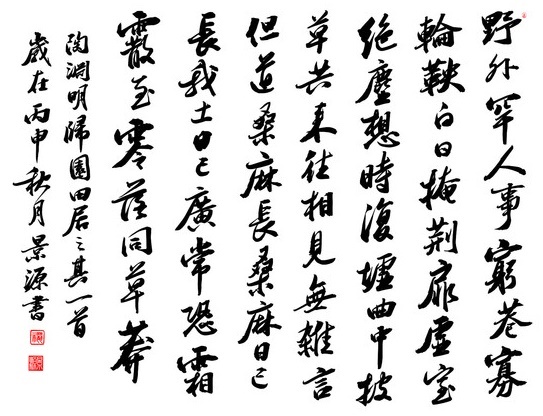 野外罕人事窮巷寡
輪鞅白日掩荆扉虚室
絶塵想時復墟曲中披
草共来往相見無雜言
但道桑麻長桑麻日已
長我土日已廣常恐霜
霰至零落同草莽
陶淵明歸園田居之其一首
歲在丙申秋月景源書